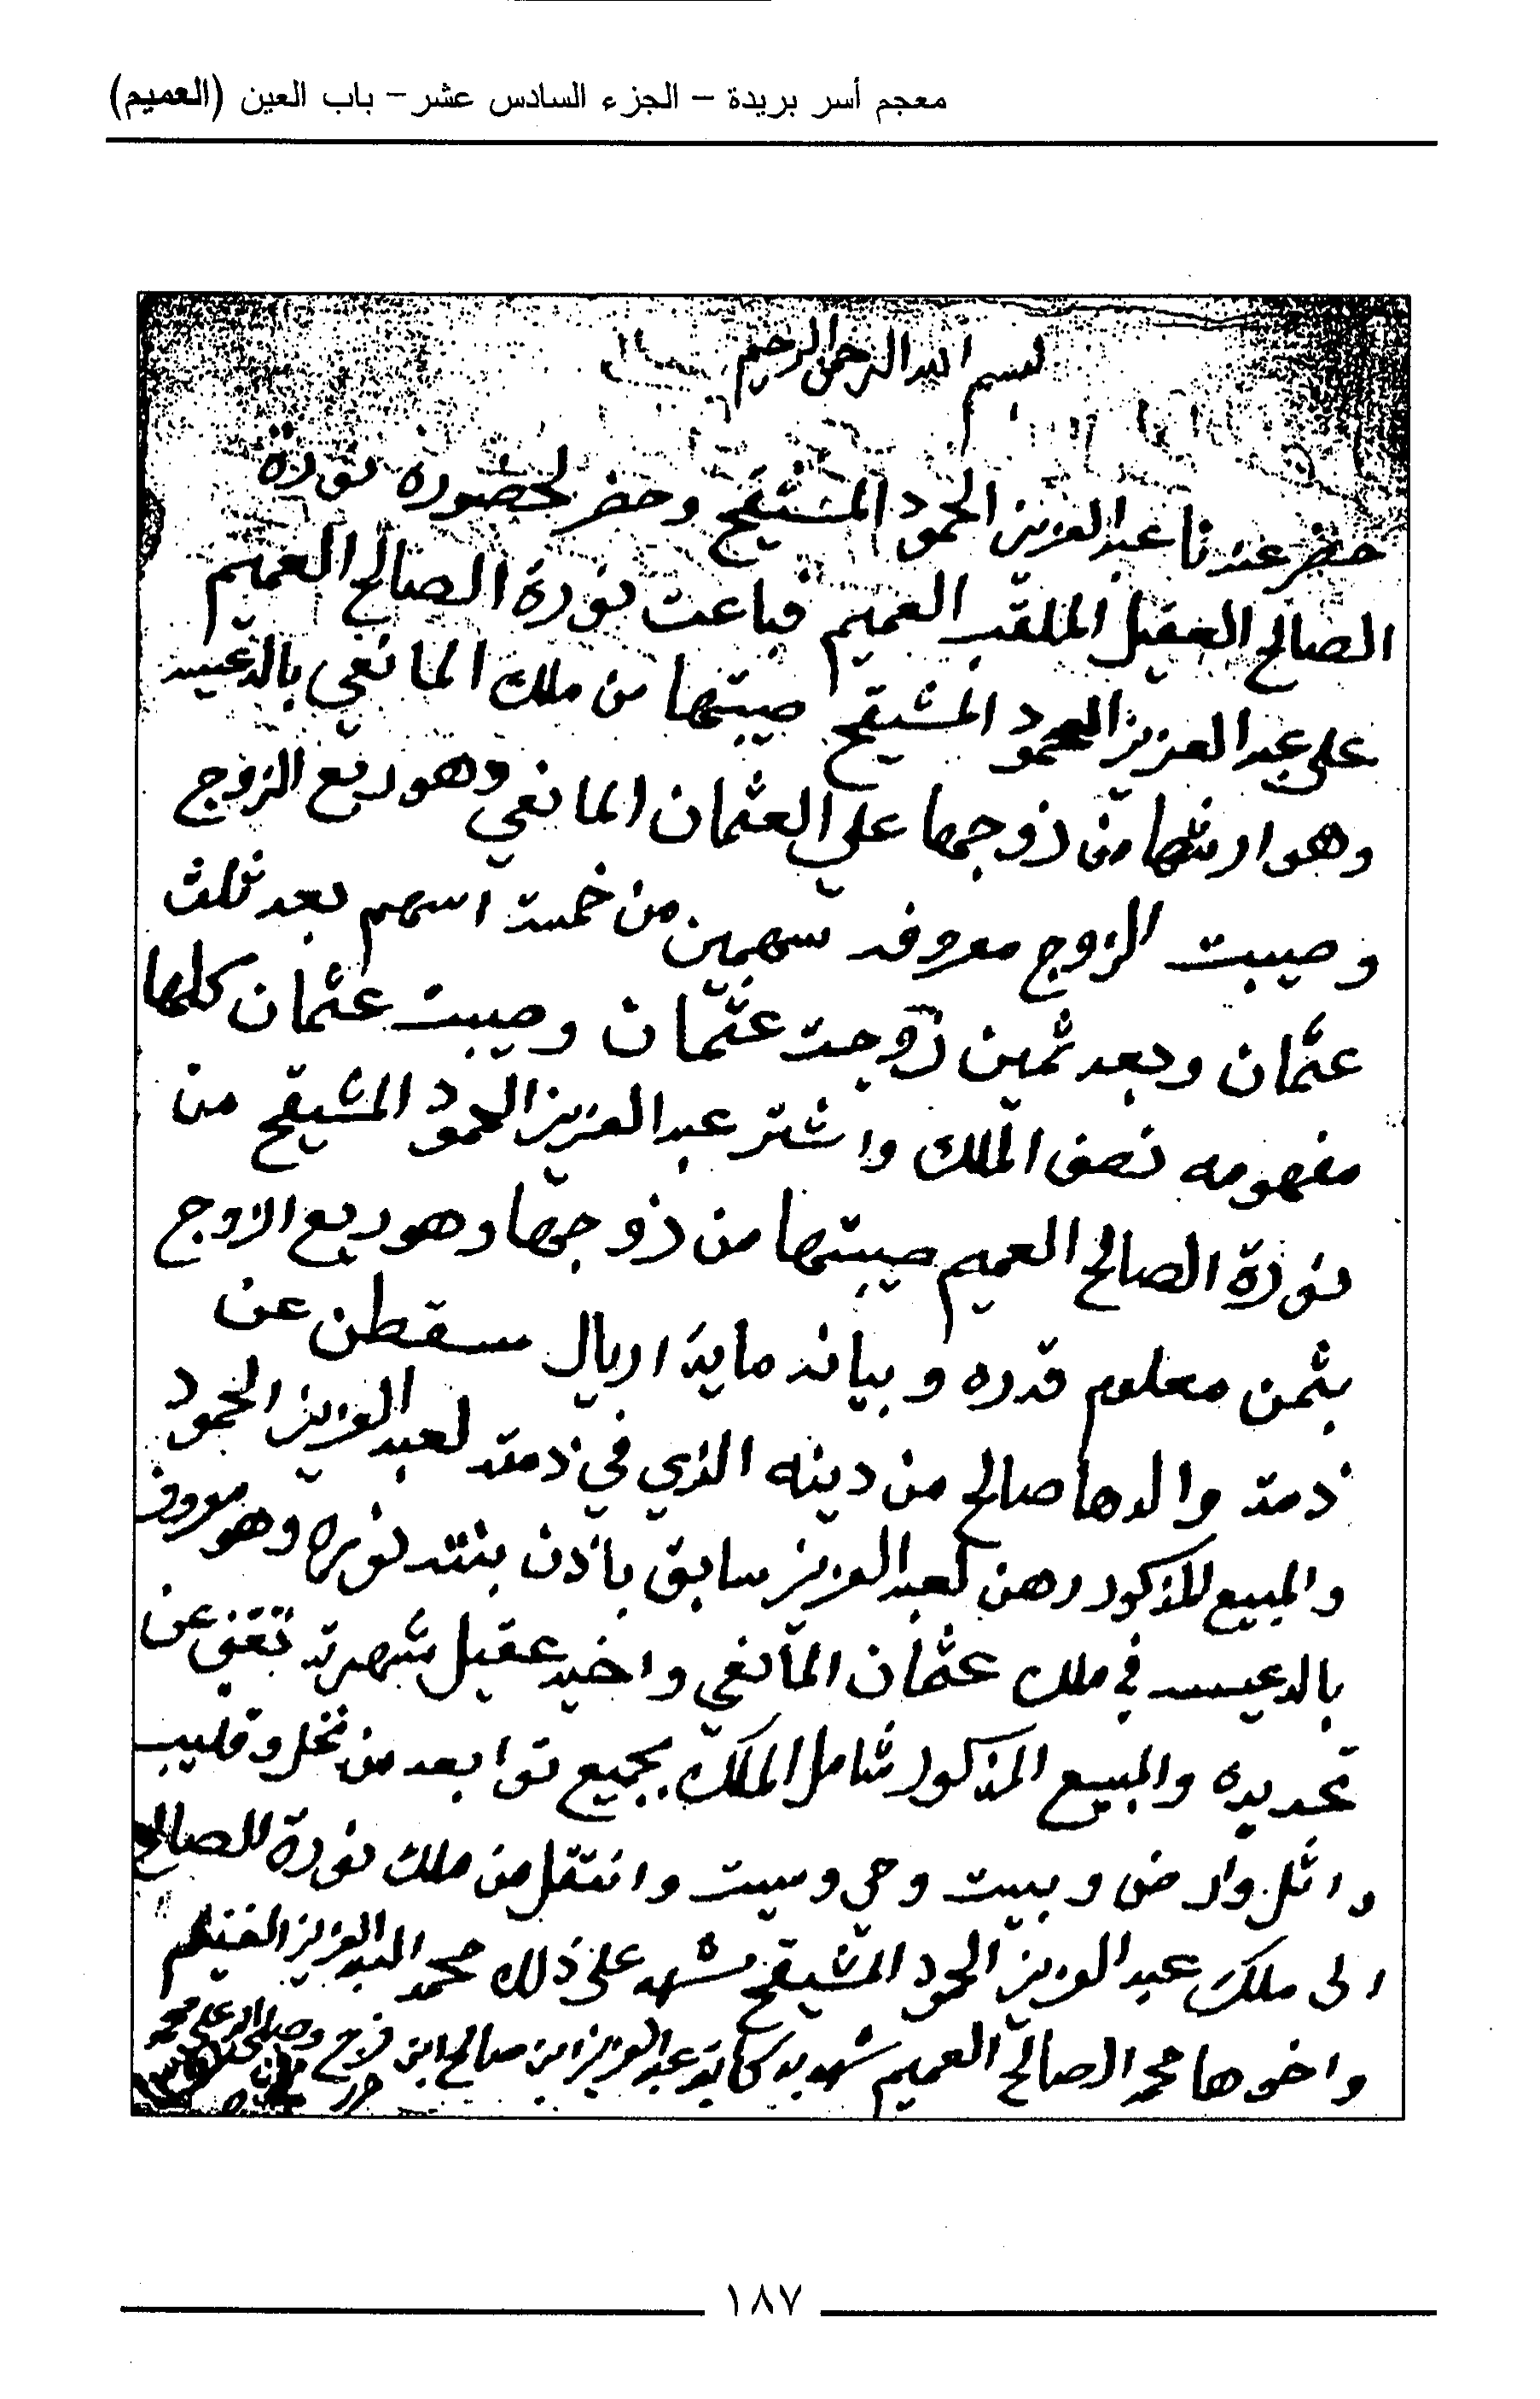 معجم أسر بريدة – الجزء السادس عشر – باب العين (العميم)
بسم الله الرحمن الرحيم
حضر عندنا عبدالعزيز الحمود المشيقح وحضر لحضوره نورة
الصالح العقيل الملقب العميم فباعت نورة الصالح العميم
على عبدالعزيز الحمود المشيقح صيبتها من ملك المانعي بالدعيسه
وهو ارثها من زوجها علي العثمان المانعي وهو ربع الزوج
وصيبت الزوج معروفه سهمين من خمسة اسهم بعد ثلث
عثمان وبعد ثمين زوجت عثمان وصيبت عثمان كلها
مفهومه نصف الملك واشتر عبدالعزيز الحمود المشيقح من
نورة الصالح العميم صيبتها من زوجها وهو ربع الازوج
بثمن معلوم قدره وبيانه ماية اريال سقطن عن
ذمة والدها صالح من دينه الذي في ذمته لعبدالعزيز الحمود
والمبيع المذكور رهن لعبدالعزيز سابق باذن بنته نوره وهو معروف
بالدعيسه في ملك عثمان المانعي واخيه عقيل شهرته تغني عن
تحديده والمبيع المذكور شامل الملك بجميع توابعه من نخل وقليب
واثل وارض وبيت وحي وميت وانتقل من ملك نورة الصالح
الى ملك عبدالعزيز الحمود المشيقح شهد على ذلك محمد العبدالعزيز الغنيم
واخوها محمد الصالح العميم شهد به كاتبه عبدالعزيز ابن صالح ابن فرج وصلى الله على محمد
حرر
١٨٧